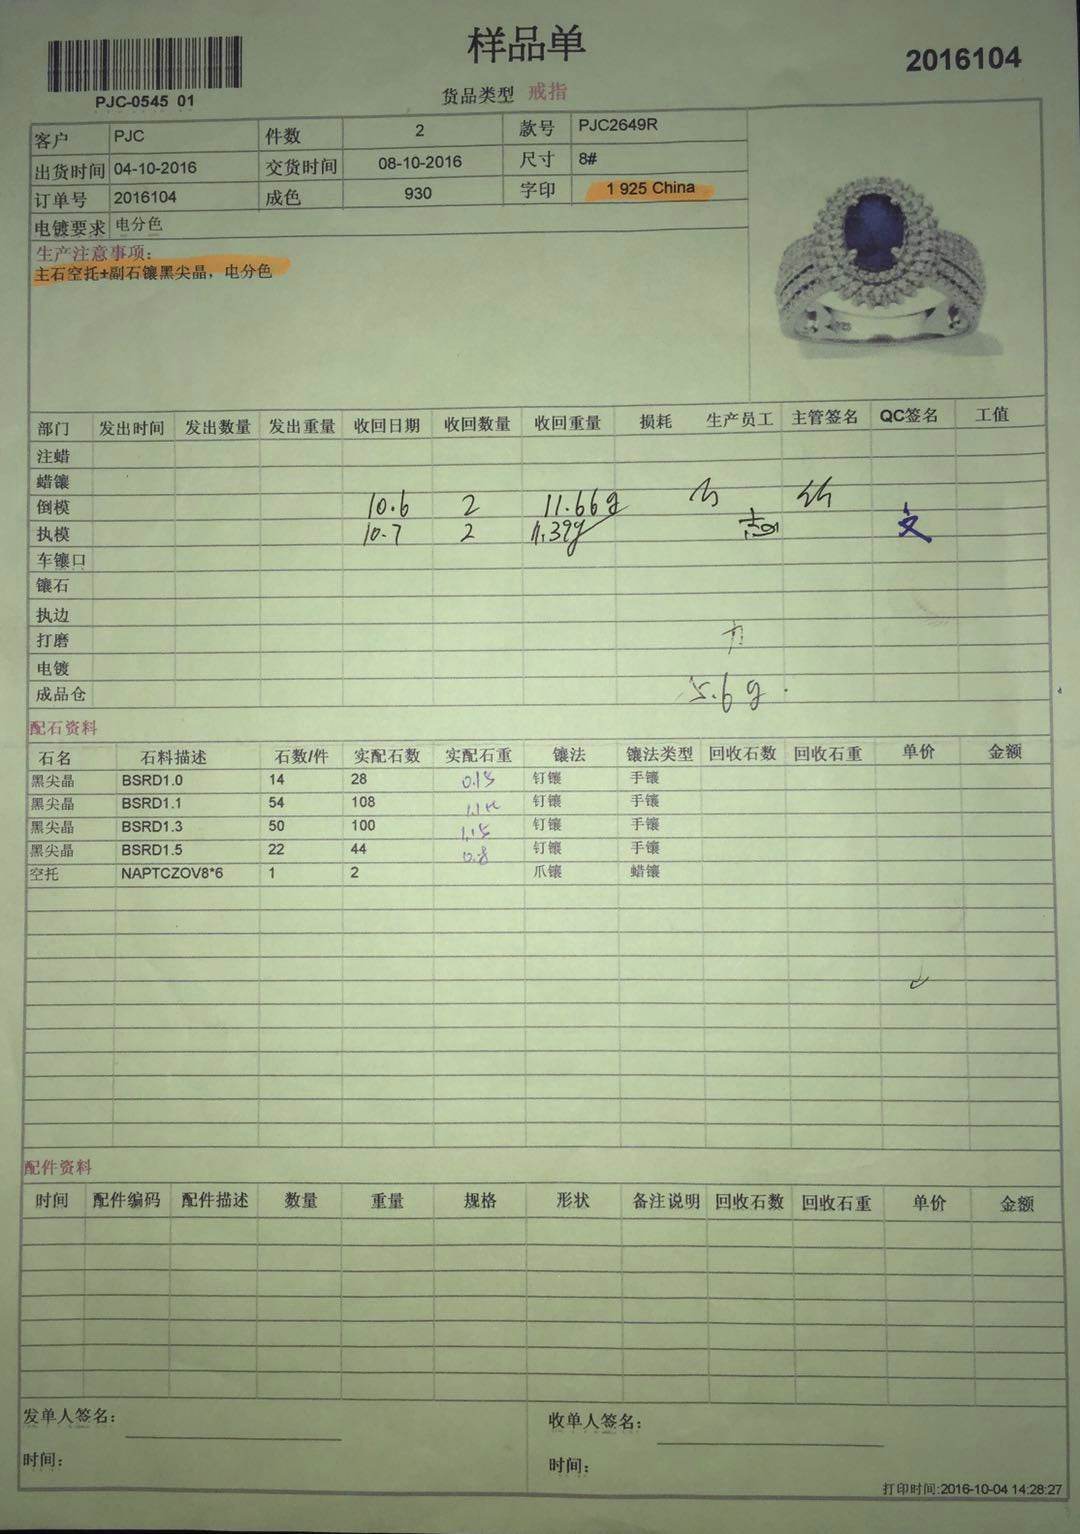 样品单
2016104
PJC-0545 01
货品类型 戒指
客户 PJC 件数 2 款号 PJC2649R
出货时间 04-10-2016 交货时间 08-10-2016 尺寸 8#
订单号 2016104 成色 930 字印 1 925 China
电镀要求 电分色
生产注意事项:
主石空托+副石镶黑尖晶，电分色
部门 发出时间 发出数量 发出重量 收回日期 收回数量 收回重量 损耗 生产员工 主管签名 QC签名 工值
注蜡
蜡镶
倒模 10.6 2 11.66g
执模 10.7 2 11.39g 文
车镶口
镶石
执边
打磨
电镀
成品仓 5.6g
配石资料
石名 石料描述 石数/件 实配石数 实配石重 镶法 镶法类型 回收石数 回收石重 单价 金额
黑尖晶 BSRD1.0 14 28 0.15 钉镶 手镶
黑尖晶 BSRD1.1 54 108 钉镶 手镶
黑尖晶 BSRD1.3 50 100 1.15 钉镶 手镶
黑尖晶 BSRD1.5 22 44 0.8 钉镶 手镶
空托 NAPTCZOV8*6 1 2 爪镶 蜡镶
配件资料
时间 配件编码 配件描述 数量 重量 规格 形状 备注说明 回收石数 回收石重 单价 金额
发单人签名: 收单人签名:
时间: 时间:
打印时间:2016-10-04 14:28:27